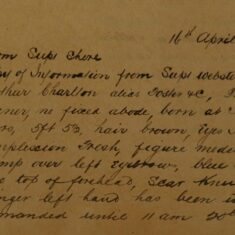 16th April
om Supt Chere
y of Information from Supt Webste
thur Charlton alias Foster &c,
ner, no fixed abode, born at
ro, 5ft 5½, hair brown, eyes
mplexion fresh, figure medi
mp over left eyebrow, blue
o top of forehead, scar knu
nger left hand has been i
manded until 11 am 20th